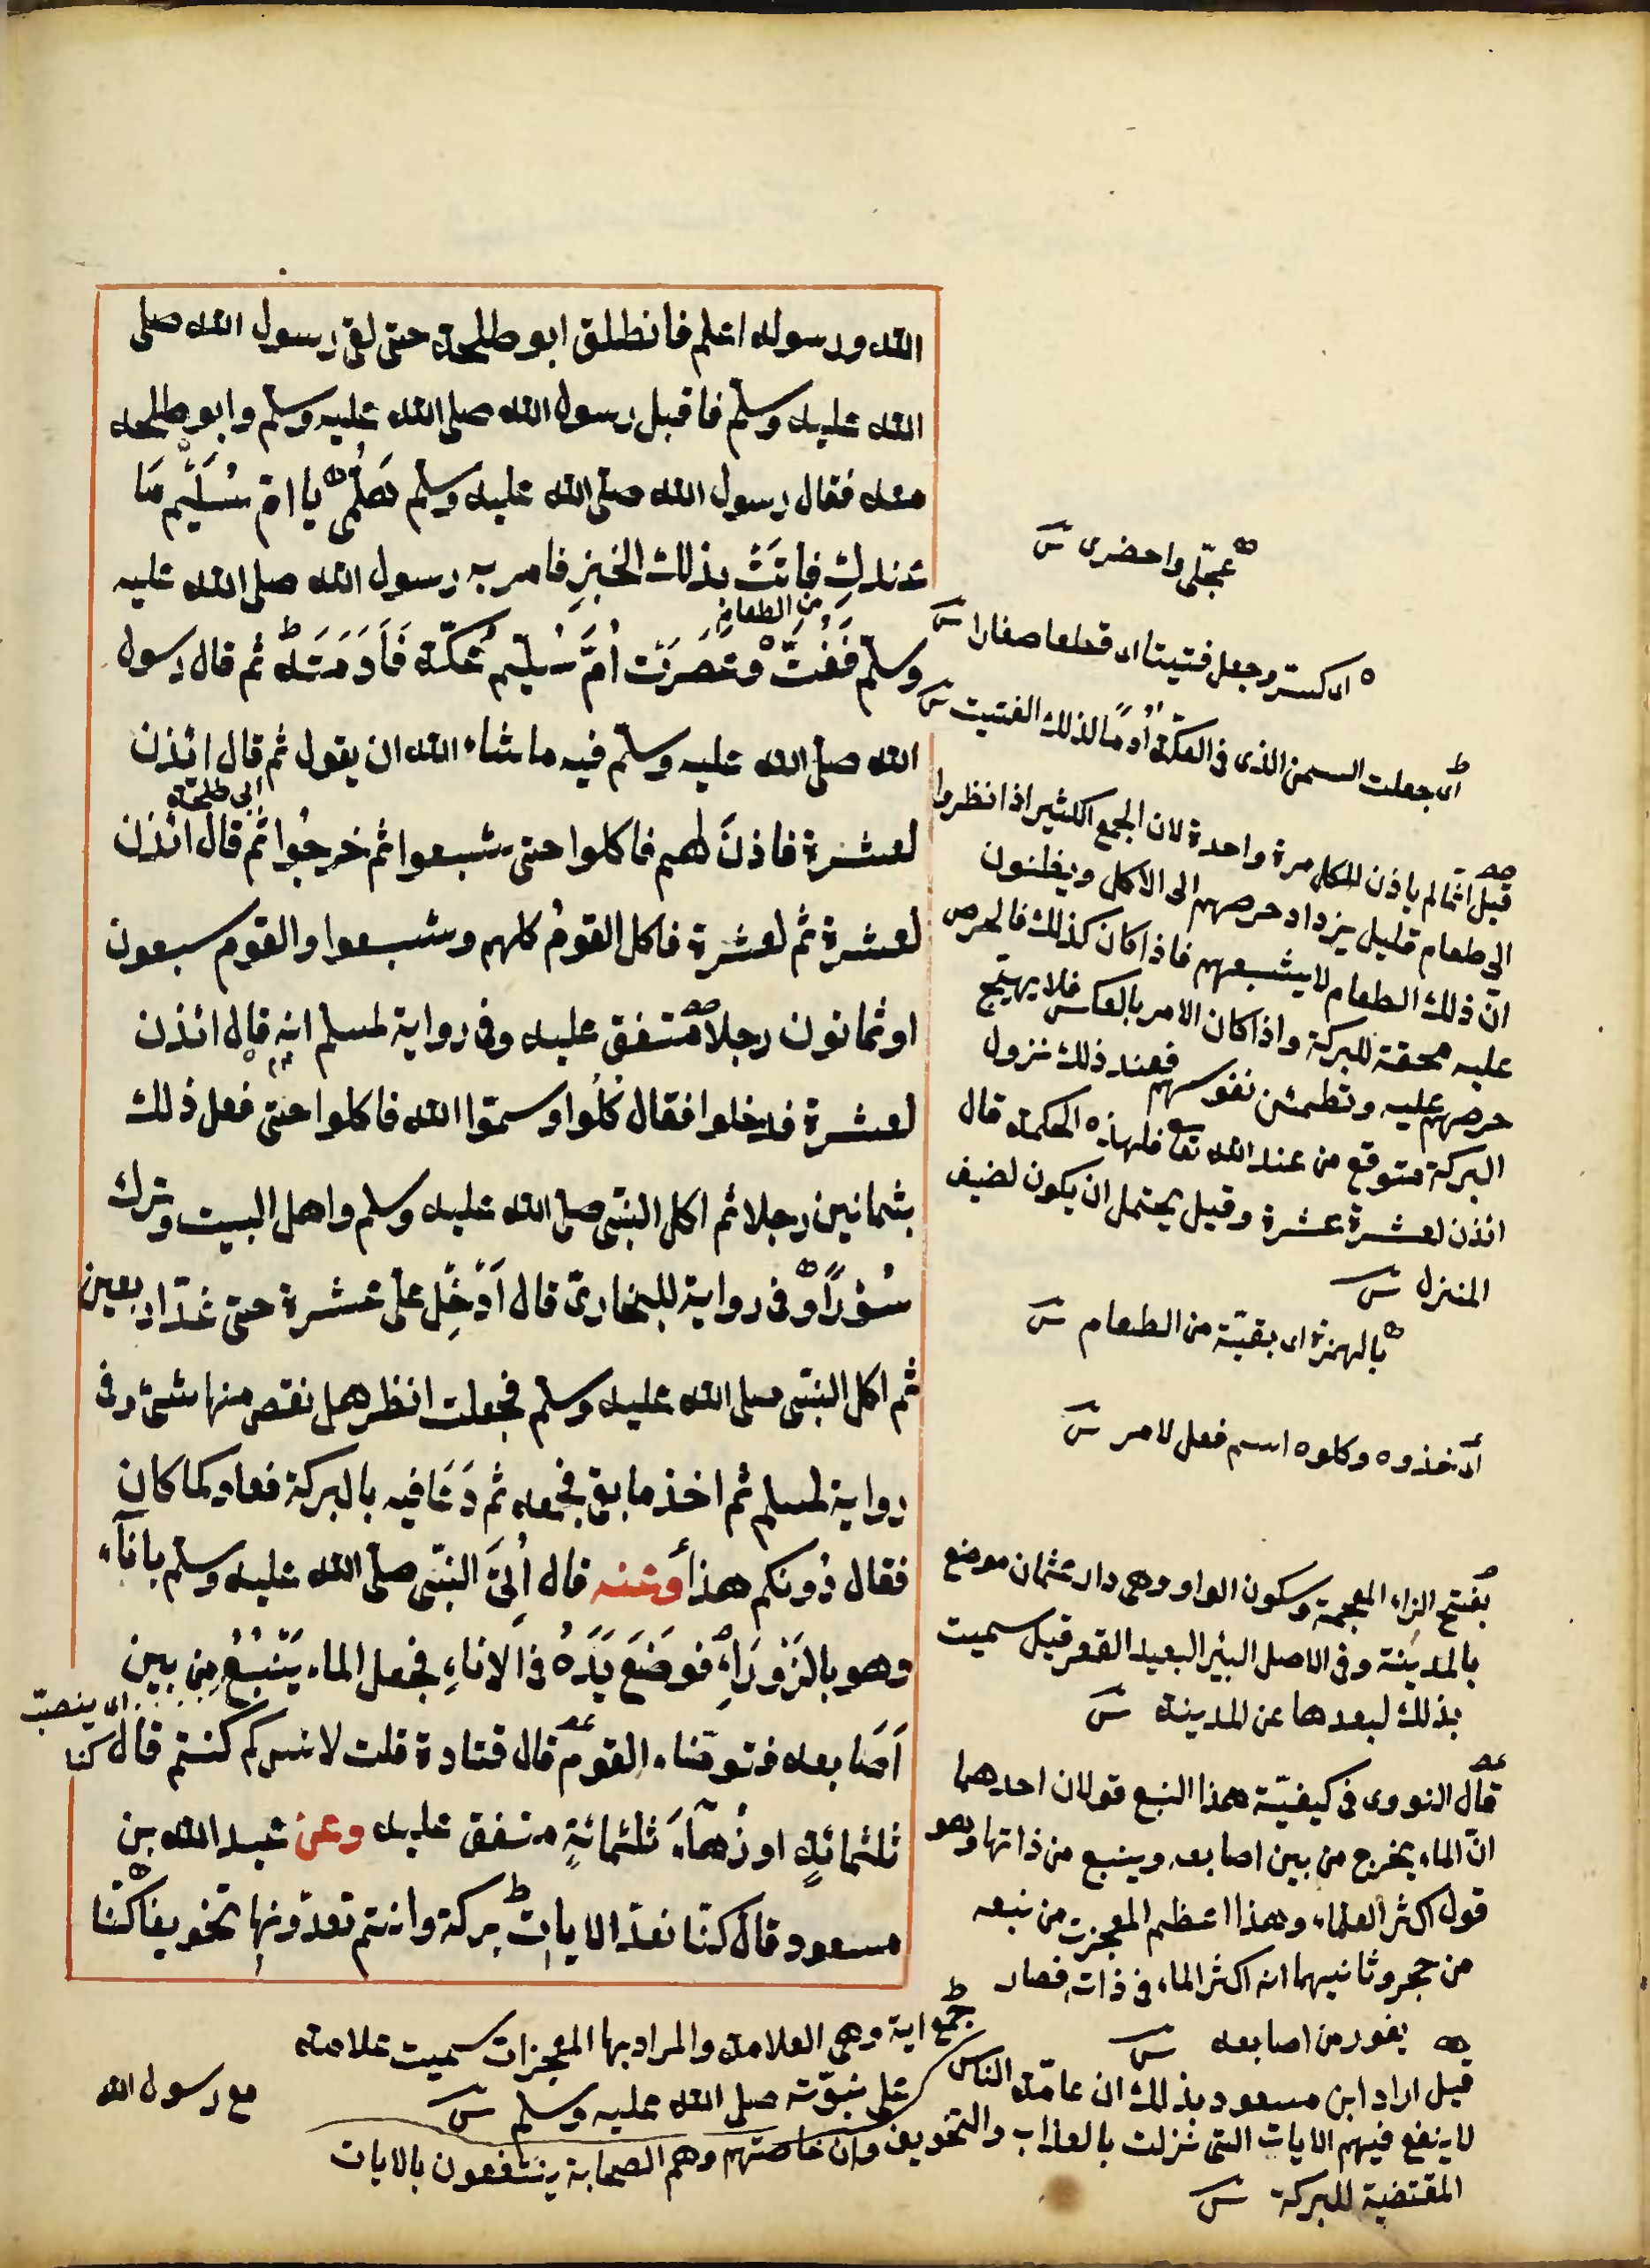 الله ورسوله اعلم فانطلق ابو طلحة حتى لقى رسول الله صلى
الله عليه وسلم فاقبل رسول الله صلى الله عليه وسلم وابو طلحة
معه فقال رسول الله صلى الله عليه وسلم هَلُمِّى يا امّ سُلَيْم مَا
عندكِ فاتَتْ بذلك الخبزِ فامر به رسول الله صلى الله عليه
من الطعام
وسلم فَفُتَّ وعَصَرَت اُمُّ سُلَيم عُكّة فَاَدَمَتْه ثم قال رسول
الله صلى الله عليه وسلم فيه ما شاء الله ان يقول ثم قال ائذن
ابى طلحة
لعشرة فاذنَ لهم فاكلوا حتى شبعوا ثم خرجُوا ثم قال ائذن
لعشرة ثم لعشرة فاكل القومُ كلهم وشبعوا والقوم سبعون
او ثمانون رجلا متفق عليه وفى رواية لمسلم انه قال ائذن
لعشرة فدخلوا فقال كُلُوا وسمّوا الله فاكلوا حتى فعل ذلك
بثمانين رجلا ثم اكل النبّى صلى الله عليه وسلم واهل البيت وترك
سُؤرًا وفى رواية للبخارىّ قال اَدْخِل علىّ عشرة حتى عَدّ اربعين
ثم اكل النبّى صلى الله عليه وسلم فجعلت انظر هل نقص منها شئ وفى
رواية لمسلم ثم اخذ ما بقى فجمعه ثم دَعَا فيه بالبركة فعاد كما كان
فقال دُونكم هذا وعنه قال اُتِىَ النبّى صلى الله عليه وسلم باناء
وهو بالزَوْرَاءِ فوضَعَ يَدَهُ فى الاناءِ فجعل الماء يَنْبُعُ مِن بين
اى ينصبّ
اَصَابعه فتوضّاء القوم قال قتادة قلت لانس كم كنتم قال كنا
ثلثمائةٍ او زُهآءَ ثلثمائةٍ متفق عليه وعن عبد الله بن
مسعود قال كنّا نعدّ الايات بركة وانتم تعدّونها تخويفا كنّا
مع رسول الله
عجّلى واحضرى ش
اى كسّر وجعل فتيتا اى قطعا صغارا ش
اى جعلت السمن الذى فى العكّة اُدمًا لذلك الفتيت ش
قيل انما لم ياذن للكل مرة واحدة لان الجمع الكثير اذا نظروا
الى طعام قليل يزداد حرصهم الى الاكل ويظنون
ان ذلك الطعام لا يشبعهم فاذا كان كذلك فالحرص
عليه محقة للبركة واذا كان الامر بالعكس فلا يهيّج
حرصهم عليه وتطمئن نفوسهم فعند ذلك نزول
البركة متوقع من عند الله تعا فلهذه الحكمة قال
ائذن لعشرة عشرة وقيل يحتمل ان يكون لضيف
المنزل ش
بالهمزة اى بقيّة من الطعام ش
اى خذوه وكلوه اسم فعل لامر ش
بفتح الزاء المعجمة وسكون الواو وهى دار عثمان موضع
بالمدينة وفى الاصل البئر البعيد القعر قيل سميت
بذلك لبعدها عن المدينة ش
قال النووى فى كيفيّة هذا النبع قولان احدهما
انّ الماء يخرج من بين اصابعه وينبع من ذاتها وهو
قول اكثر العلماء وهذا اعظم المعجزت من نبعه
من حجر وثانيهما انه اكثر الماء فى ذاته فصار
يفور من اصابعه ش
جمع اية وهى العلامة والمراد بها المعجزات سميت علامة
على نبوّته صلى الله عليه وسلم ش
قيل اراد ابن مسعود بذلك ان عامّة الناس
لا ينفع فيهم الايات التى نزلت بالعذاب والتخويف وان خاصتهم وهم الصحابة ينتفعون بالايات
المقتضية للبركة ش